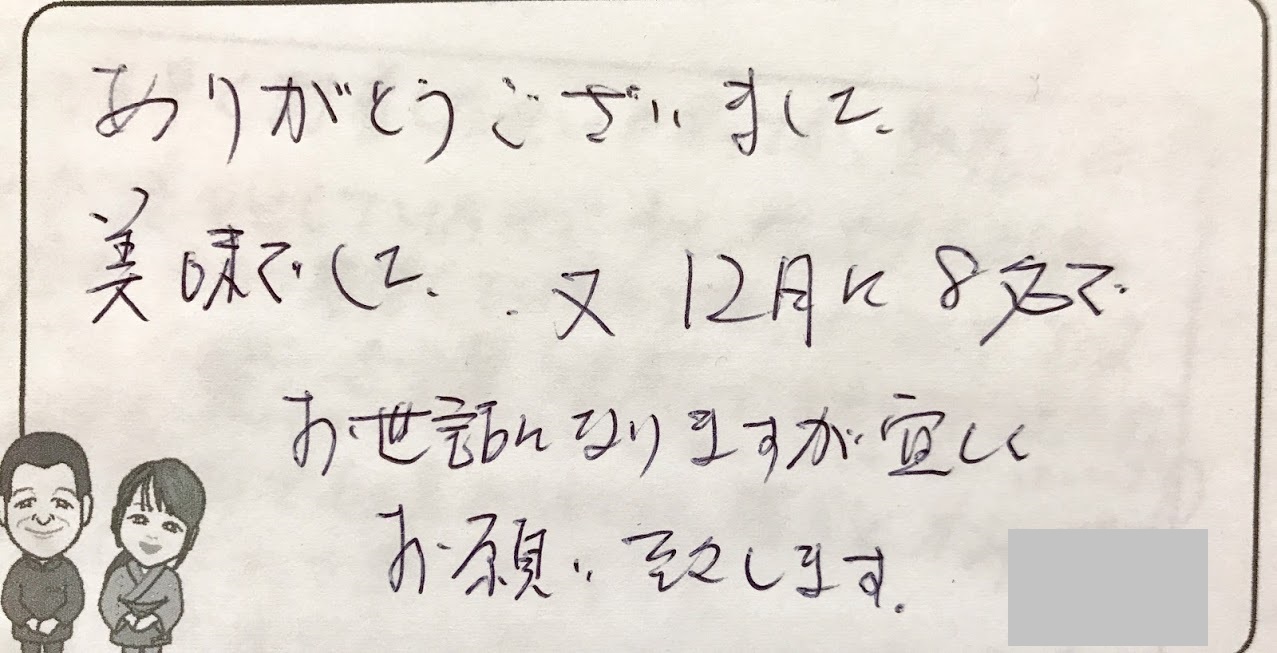 ありがとうございました。
美味でした。又12月に8名で
お世話になりますが宜しく
お願い致します。